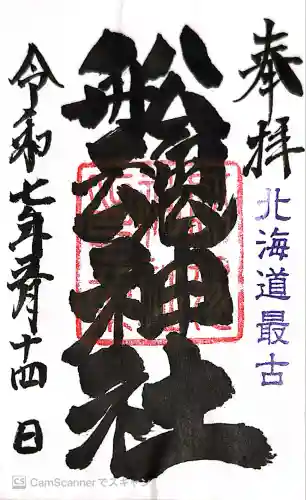 奉拝
北海道最古
船魂神社
令和七年三月十四日
CamScannerでスキャン